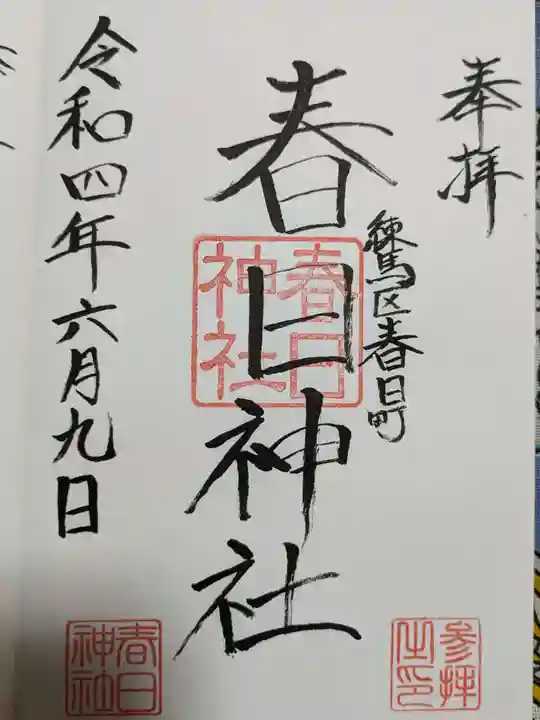 奉拝
練馬区春日町
春日神社
春日神社
令和四年六月九日
参拝之印
春日神社